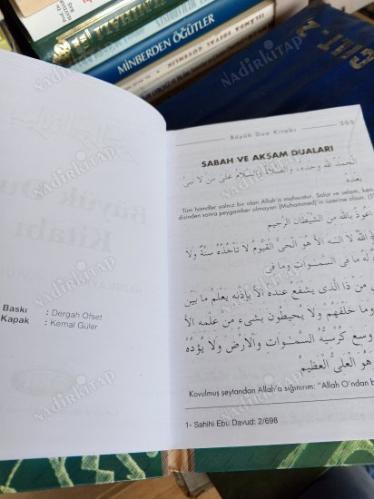 MİNBERDEN ÖĞÜTLER
CİLT-2
Büyük Dua
Kitabı
Baskı : Dergah Ofset
Kapak : Kemal Güler
Büyük Dua Kitabı
SABAH VE AKŞAM DUALARI
الحمد لله وحده، والصلاة والسلام على من لا نبى
بعده
Tüm hamdler yalnız bir olan Allah'a mahsustur. Salat ve selam, ken-
disinden sonra peygamber olmayan (Muhammed)'in üzerine olsun.
اعوذ بالله من الشيطان الرجيم
الله لا اله الا هو الحى القيوم لا تأخذه سنة ولا
له ما فى السموات وما فى
من ذا الذى يشفع عنده الا بإذنه يعلم ما بين
وما خلفهم ولا يحيطون بشىء من علمه الا
وسع كرسيه السموات والارض ولا يؤده
وهو العلى العظيم
Kovulmuş şeytandan Allah'a sığınırım: "Allah O'ndan b
1- Sahihi Ebu Davud: 2/698
nadirkitap